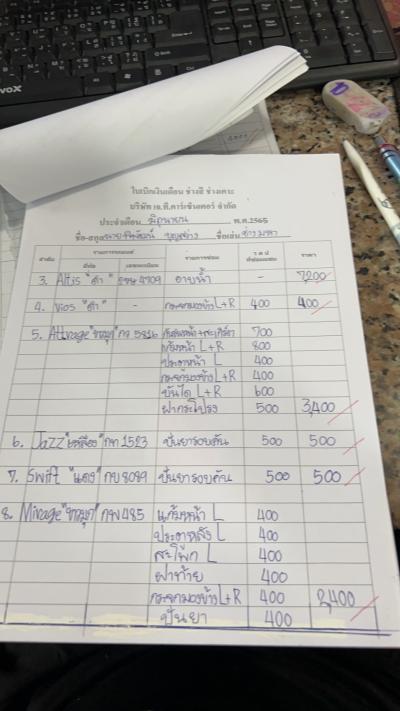 ใบเบิกเงินเดือน ช่างสี ช่างเคาะ
บริษัท เจ.ที.คาร์เซ็นเตอร์ จำกัด
ประจำเดือน มิถุนายน พ.ศ.2565
ชื่อ-สกุล ชื่อเล่น
ลำดับ รายการรถยนต์ รายการซ่อม ราคา
ยี่ห้อ เลขทะเบียน
3. Altis "ดำ" 4709 อาบน้ำ - 7,200
4. Vios "ดำ" - กระจกมองข้าง L+R 400 400
5. Attrage "ขาวมุก" กว 5816 กันชนหน้า+สเกิร์ต 700
แก้มหน้า L+R 800
ประตูหน้า L 400
กระจกมองข้าง L+R 400
บันได L+R 600
ฝากระโปรง 500 3,400
6. Jazz "เหลือง" กท 1523 ปั่นยารอบคัน 500 500
7. Swift "แดง" กบ 8089 ปั่นยารอบคัน 500 500
8. Mirage "ขาวมุก" กพ 485 แก้มหน้า L 400
ประตูหลัง L 400
สะโพก L 400
ฝาท้าย 400
กระจกมองข้าง L+R 400 2,400
ปั่นยา 400